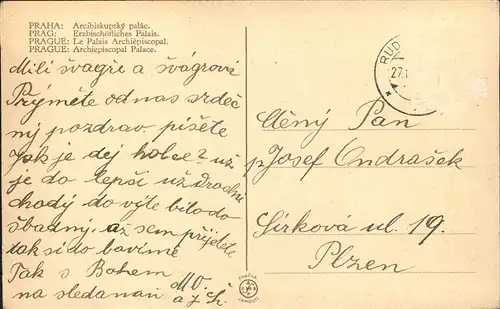 PRAHA: Arcibiskupský palác.
PRAG: Erzbischöfliches Palais.
PRAGUE: Le Palais Archiépiscopal.
PRAGUE: Archiepiscopal Palace.
Milí švagře a švágrová
Přijměte od nas srdeč
ný pozdrav. píšete
jak je dej holce? už
je do lepší už drochu
chodý do výte bilo do
špadný. až sem přijdete
tak si do bavíme
Tak s Bohem
na sledanau M V.
a J. Š.
RUD
27.
Ctěný Pan
p Josef Ondrašek
Sirková ul. 19.
Plzen
ZNAČKA
JAKOSTI